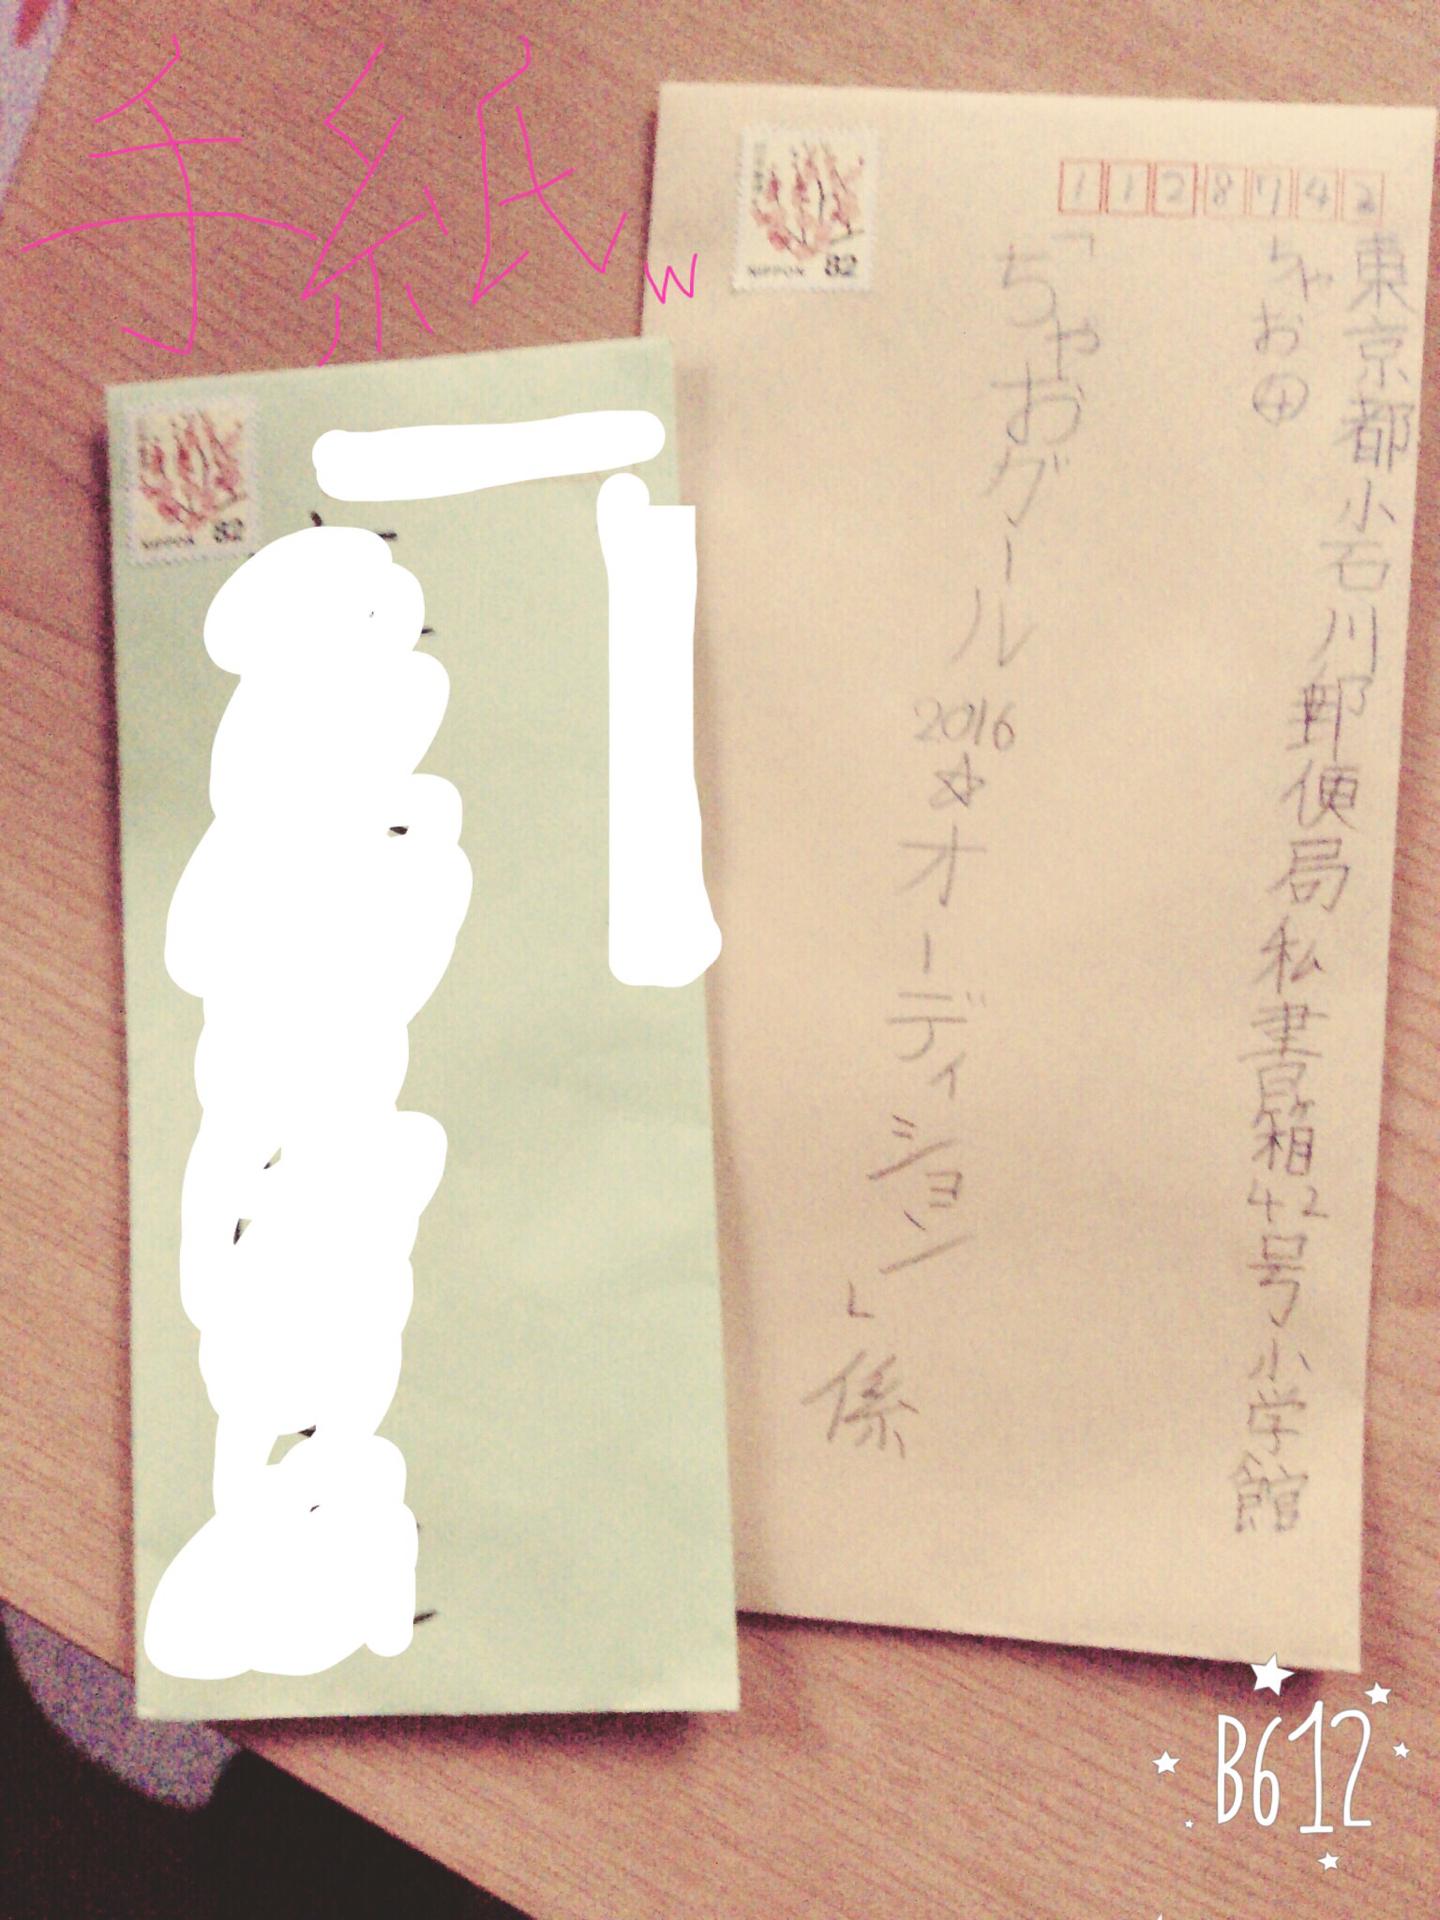 手紙w
NIPPON 82
1128742
東京都小石川郵便局私書箱42号小学館
ちゃお㊉
「ちゃおグール2016☆オーディション」係
NIPPON 82
B612